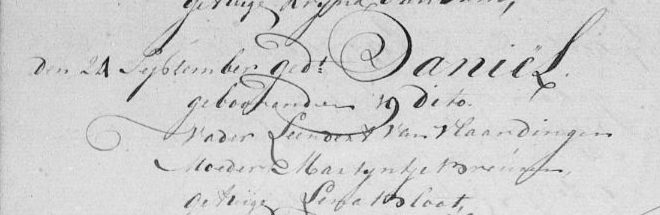 getuige
Den 24 September gedt Daniël.
gebooren den 19 dito.
Vader Leendert Van Vlaardingen
Moeder Martyntje
getuige Lena Sloot,